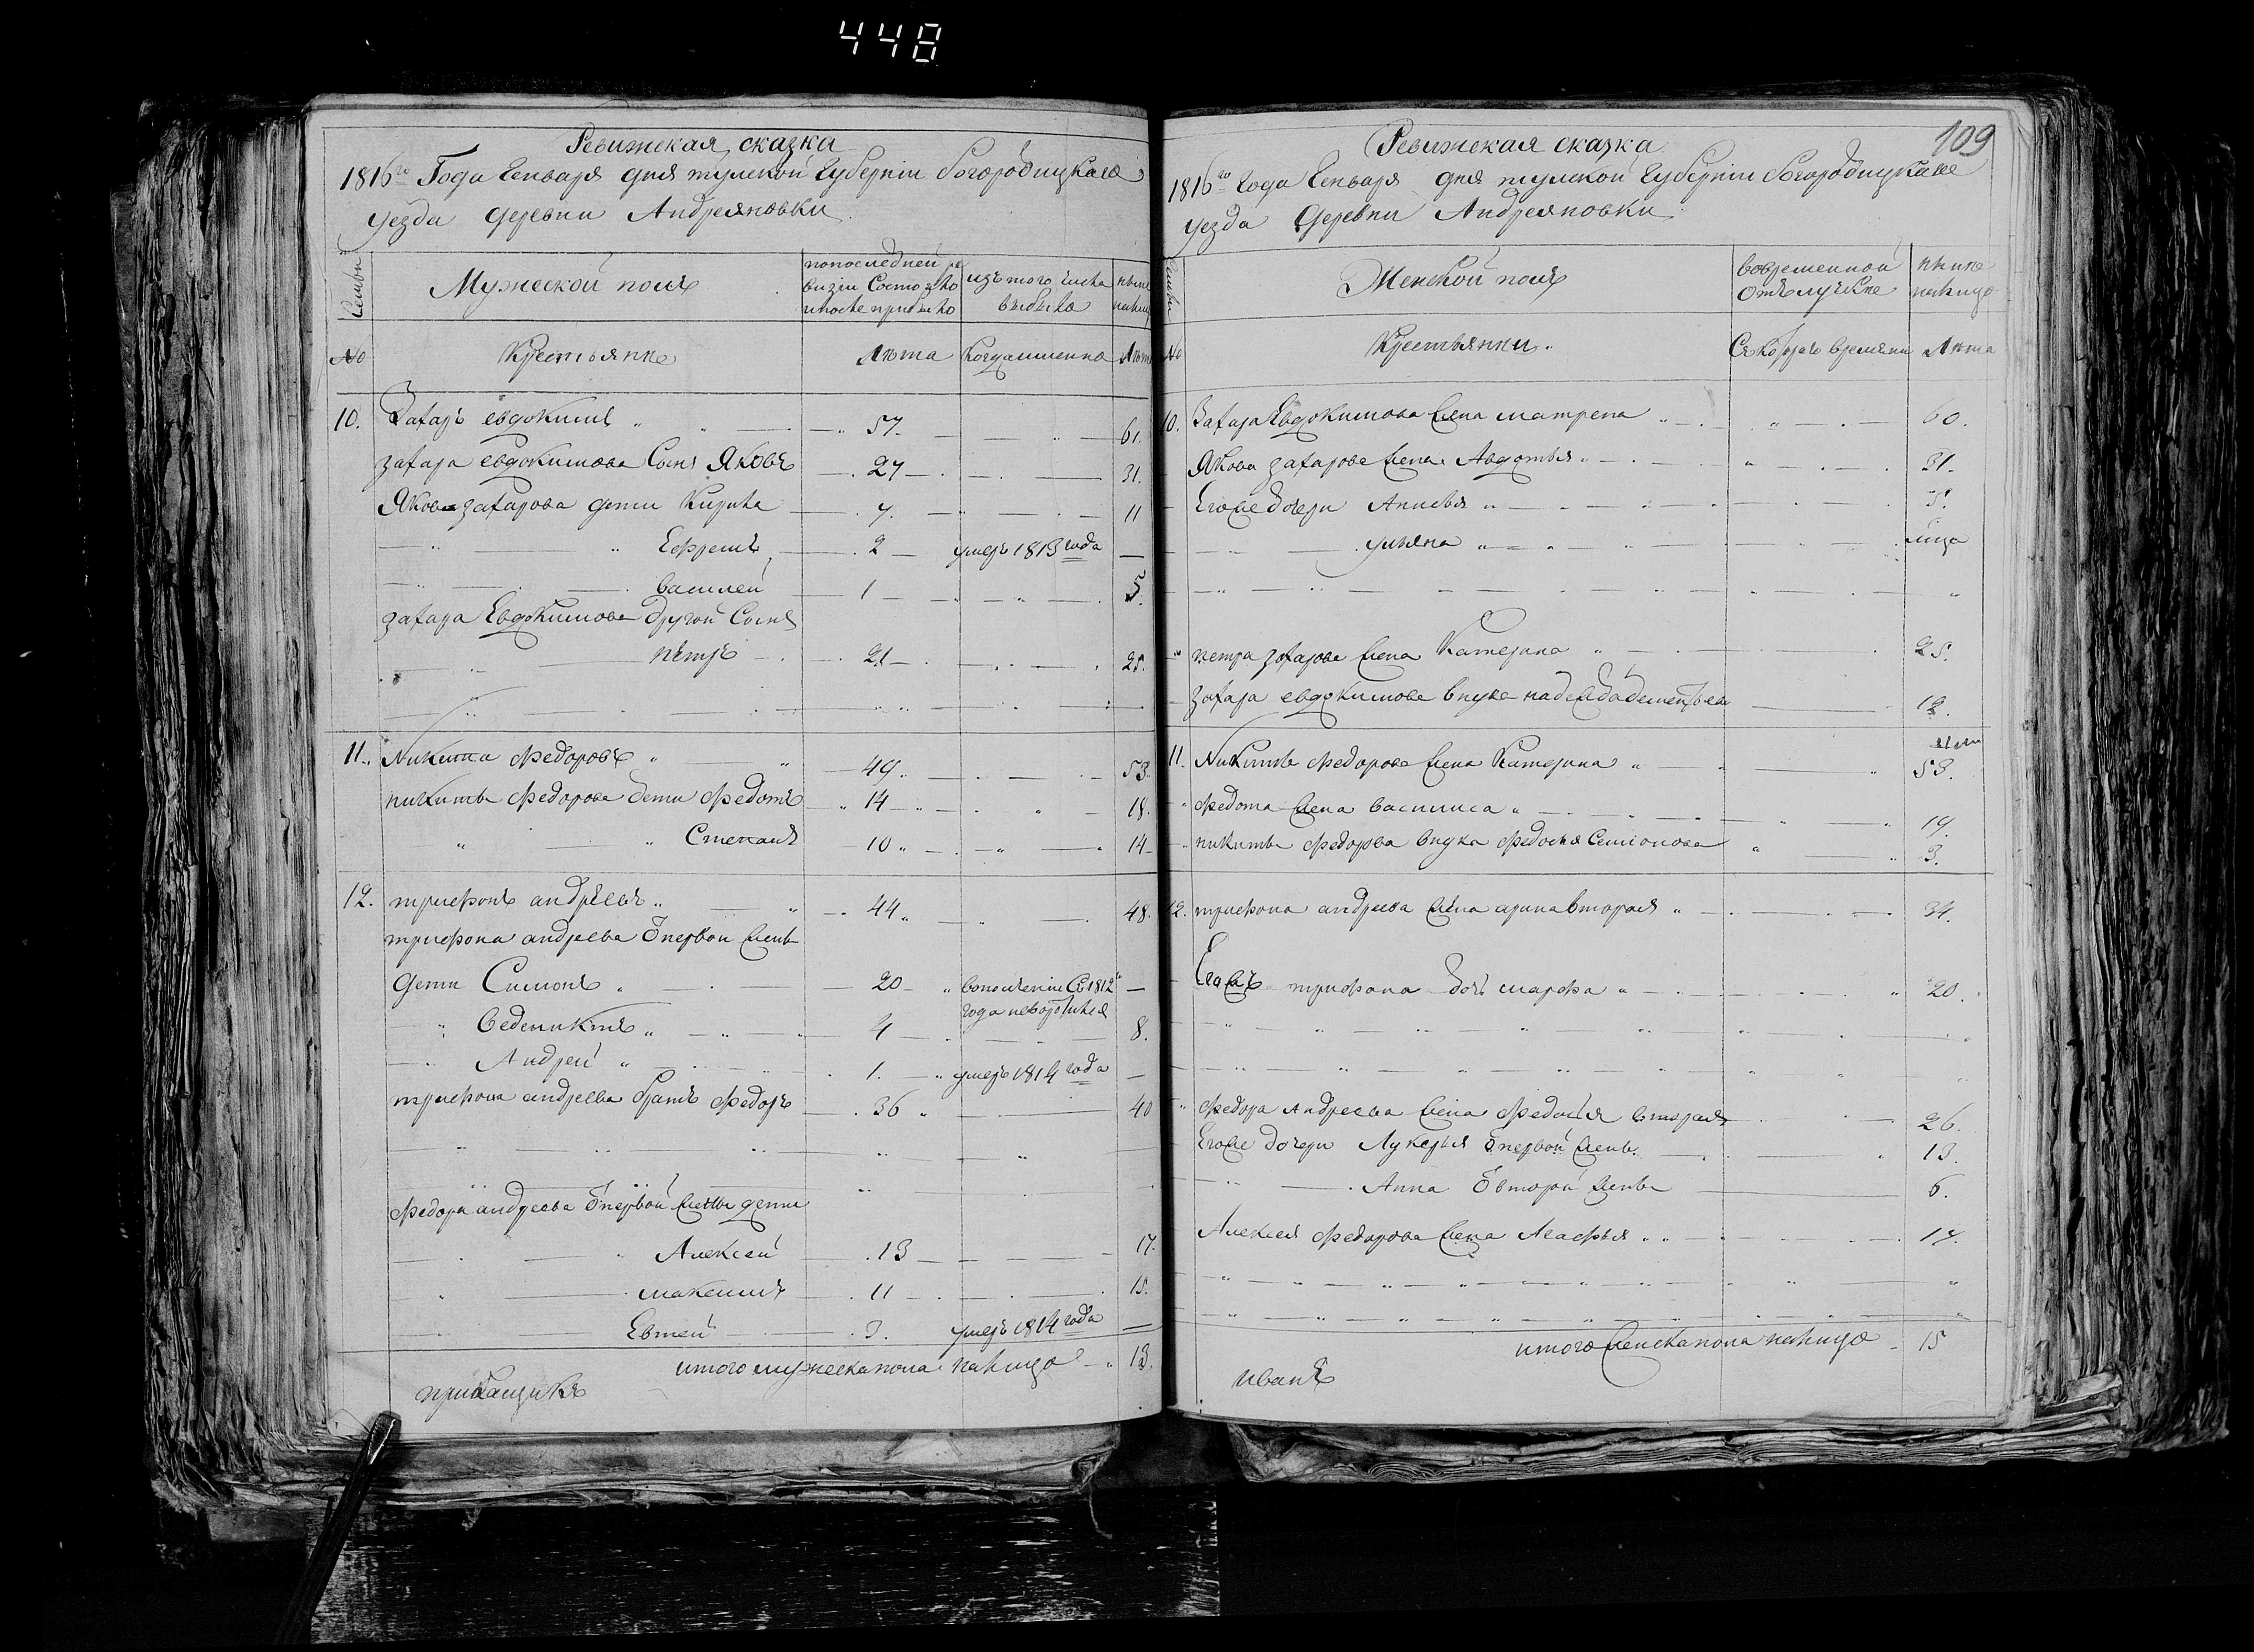 448
Ревижская сказка
1816го Года Генваря дня тулской Губернiи богородицкаго
уезда деревни Андреяновки
Семьи
Мужеской полъ
попоследней ре
визiи Состояло
ипосле прибыло
изъ того числа
выбыло
ныне
налицо
No
Крестьяне
Лѣта
Когда имянно
Лѣта
10. Захаръ евдокимъ 57. 61.
захара евдокимова Сынъ Яковъ 27 31.
Якова захарова дети Кирила 7. 11
Ефремъ 2 умеръ 1813 года
василей 1 5.
захара Евдокимова другой Сынъ
петръ 21 25.
11. Никита федоровъ 49 53.
никиты федорова дети федотъ 14 18.
Степанъ 10 14
12. трифонъ андреевъ 44 48.
трифона андреева Отпервой жены
дети Симонъ 20 вополченiи Съ 1812го
года невозвратился
Веденихтъ 4 8.
Андрей 1. умеръ 1814 года
трифона андреева братъ федоръ 36 40
федора андреева Отпервой жены дети
Алексей 13 17.
максимъ 11 15.
Евтей 3. умеръ 1814 года
итого мужеска пола налицо 13.
прикащикъ
109
Ревижская сказка
1816го года Генваря дня тулской Губернiи богородицкаго
уезда Деревни Андреяновки
Семьи
Женской полъ
вовременной
отълучке
ныне
налицо
No
Крестьянки
Съ котораго времяни
Лѣта
10. Захара Евдокимова жена матрена 60.
Якова захарова жена Авдотья 31.
Егоже дочери Анисья 5.
ульяна
петра захарова жена Катерина 25.
захара евдокимова внука надежда дементьева 12.
11. Никиты федорова жена Катерина 53.
федота жена василиса 19.
никиты федорова внука федосья Семионова 3.
12. трифона андреева жена арина вторая 34.
Егожъ трифона дочь марфа 20.
федора Андреева жена федосья вторая 26.
Егоже дочери Лукерья Отпервой жены 13.
Анна Отвторой жены 6.
Алексея федорова жена Агафья 17.
итого женска пола налицо 15
иванъ